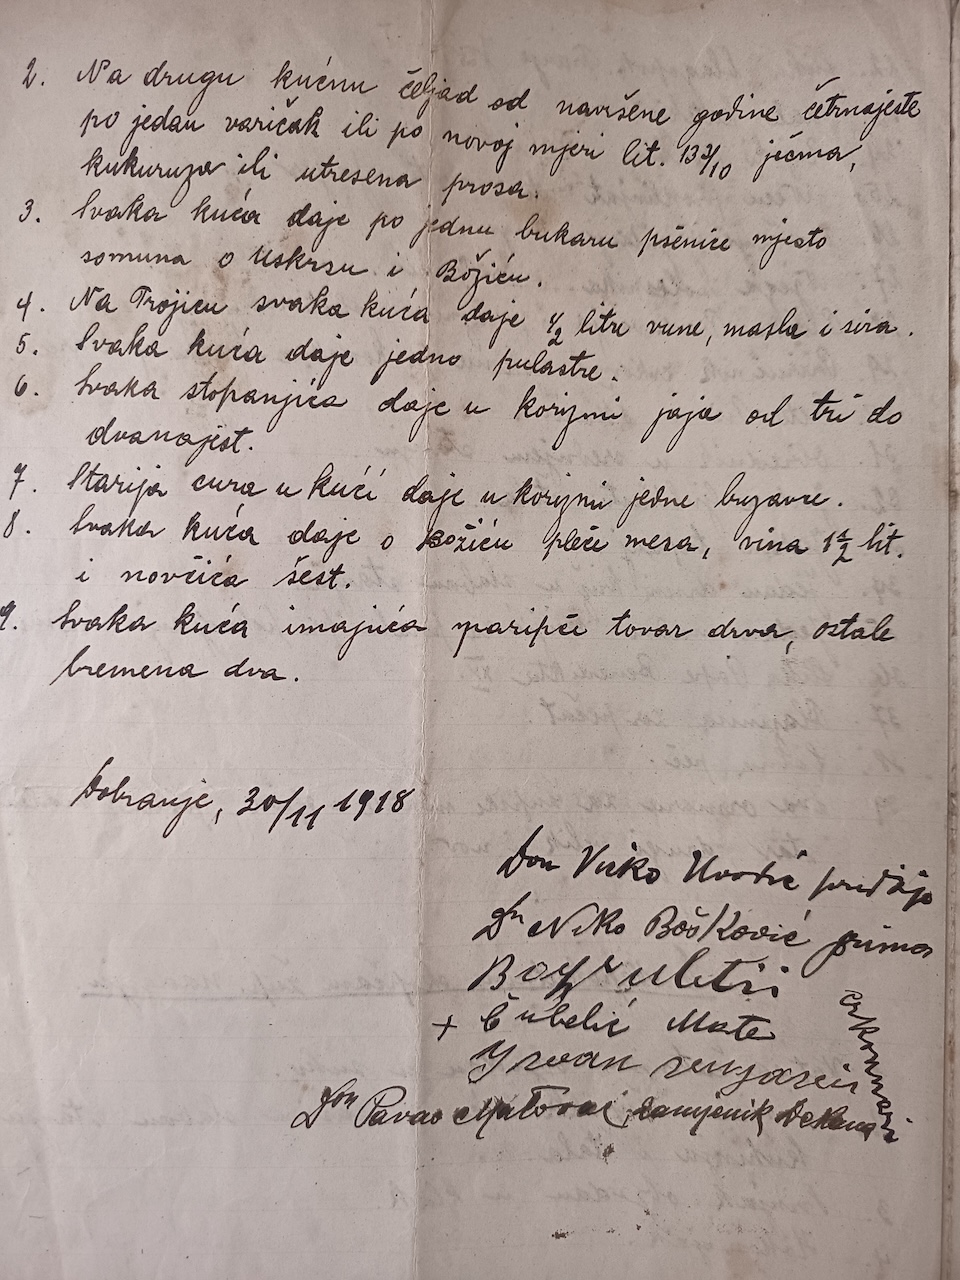 2. Na drugu kućnu čeljad od navršene godine četrnajeste
po jedan varičak ili po novoj mjeri lit. 13 3/10 ječma,
kukuruza ili utresena prosa.
3. Svaka kuća daje po jednu bukaru pšenice mjesto
somuna o Uskrsu i Božiću.
4. Na Trojicu svaka kuća daje 1/2 litre vune, masla i sira.
5. Svaka kuća daje jedno pulastre.
6. Svaka stopanjića daje u korizmi jaja od tri do
dvanajest.
7. Starija cura u kući daje u korizmi jedne bizavre.
8. Svaka kuća daje o Božiću pleće mesa, vina 1 1/2 lit.
i novčića šest.
9. Svaka kuća imajuća paripče tovar drva, ostale
bremena dva.
Dobranje, 30/11 1918
Don Vicko predaje
Dn Niko Bošković prima
+ Čubelić Mate
Ivan
Don Pavao zamjenik Dekana
crkovnari